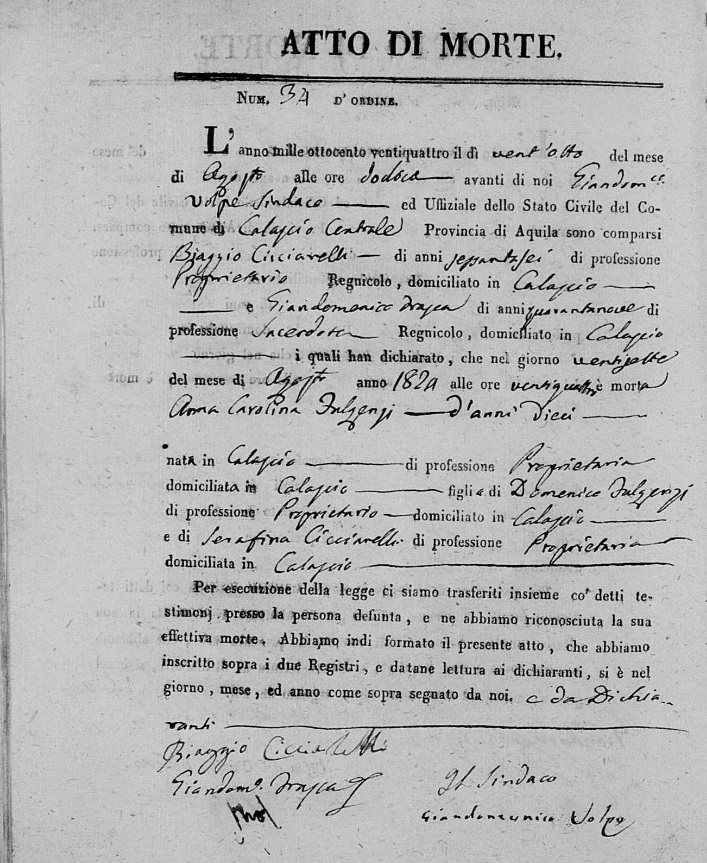 ATTO DI MORTE.
NUM. 34 D' ORDINE.
L' anno mille ottocento ventiquattro il dì vent'otto del mese
di Agosto alle ore dodici avanti di noi Giandomco
Volpe Sindaco ed Uffiziale dello Stato Civile del Co-
mune di Calascio Centrale Provincia di Aquila sono comparsi
Biaggio Cicciarelli di anni di professione
Proprietario Regnicolo, domiciliato in Calascio
e Giandomenico Frasca di anni quarantanove di
professione Sacerdote Regnicolo, domiciliato in Calascio
i quali han dichiarato, che nel giorno ventisette
del mese di Agosto anno 1824 alle ore ventiquattro è morta
Anna Carolina Fulgenzj d'anni Dieci
nata in Calascio di professione Proprietaria
domiciliata in Calascio figlia di Domenico Fulgenzj
di professione Proprietario domiciliato in Calascio
e di Serafina Cicciarelli di professione Proprietaria
domiciliata in Calascio
Per esecuzione della legge ci siamo trasferiti insieme co' detti te-
stimonj presso la persona defunta, e ne abbiamo riconosciuta la sua
effettiva morte. Abbiamo indi formato il presente atto, che abbiamo
inscritto sopra i due Registri, e datane lettura ai dichiaranti, si è nel
giorno, mese, ed anno come sopra segnato da noi. e da Dichia-
ranti
Biaggio Cicciarelli
Giandomo. Frasca
Il Sindaco
Giandomenico Volpe